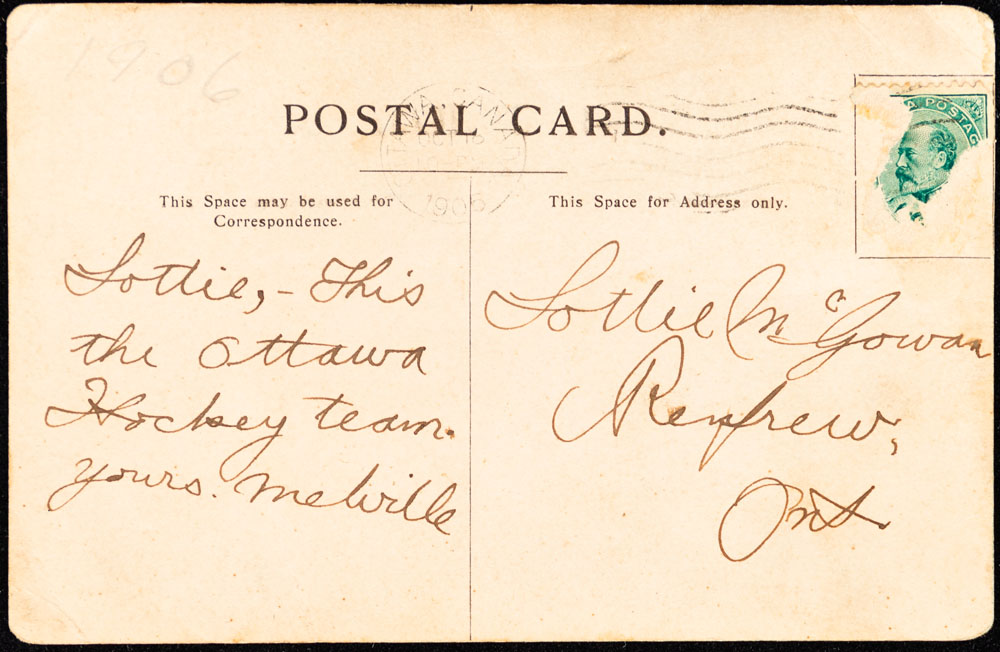 1906
POSTAL CARD.
OTTAWA, CANADA
OCT 16
1906
A POSTAG
This Space may be used for
Correspondence.
This Space for Address only.
Lottie, - This
the Ottawa
Hockey team.
yours. Melville
Lottie McGowan
Renfrew,
Ont.